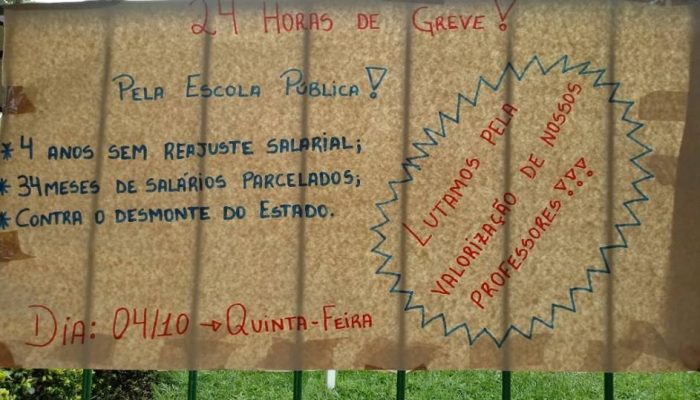 24 HORAS DE GREVE!
PELA ESCOLA PÚBLICA!
* 4 ANOS SEM REAJUSTE SALARIAL;
* 34 MESES DE SALÁRIOS PARCELADOS;
* CONTRA O DESMONTE DO ESTADO.
LUTAMOS PELA
VALORIZAÇÃO DE NOSSOS
PROFESSORES!!!
DIA: 04/10 → QUINTA-FEIRA